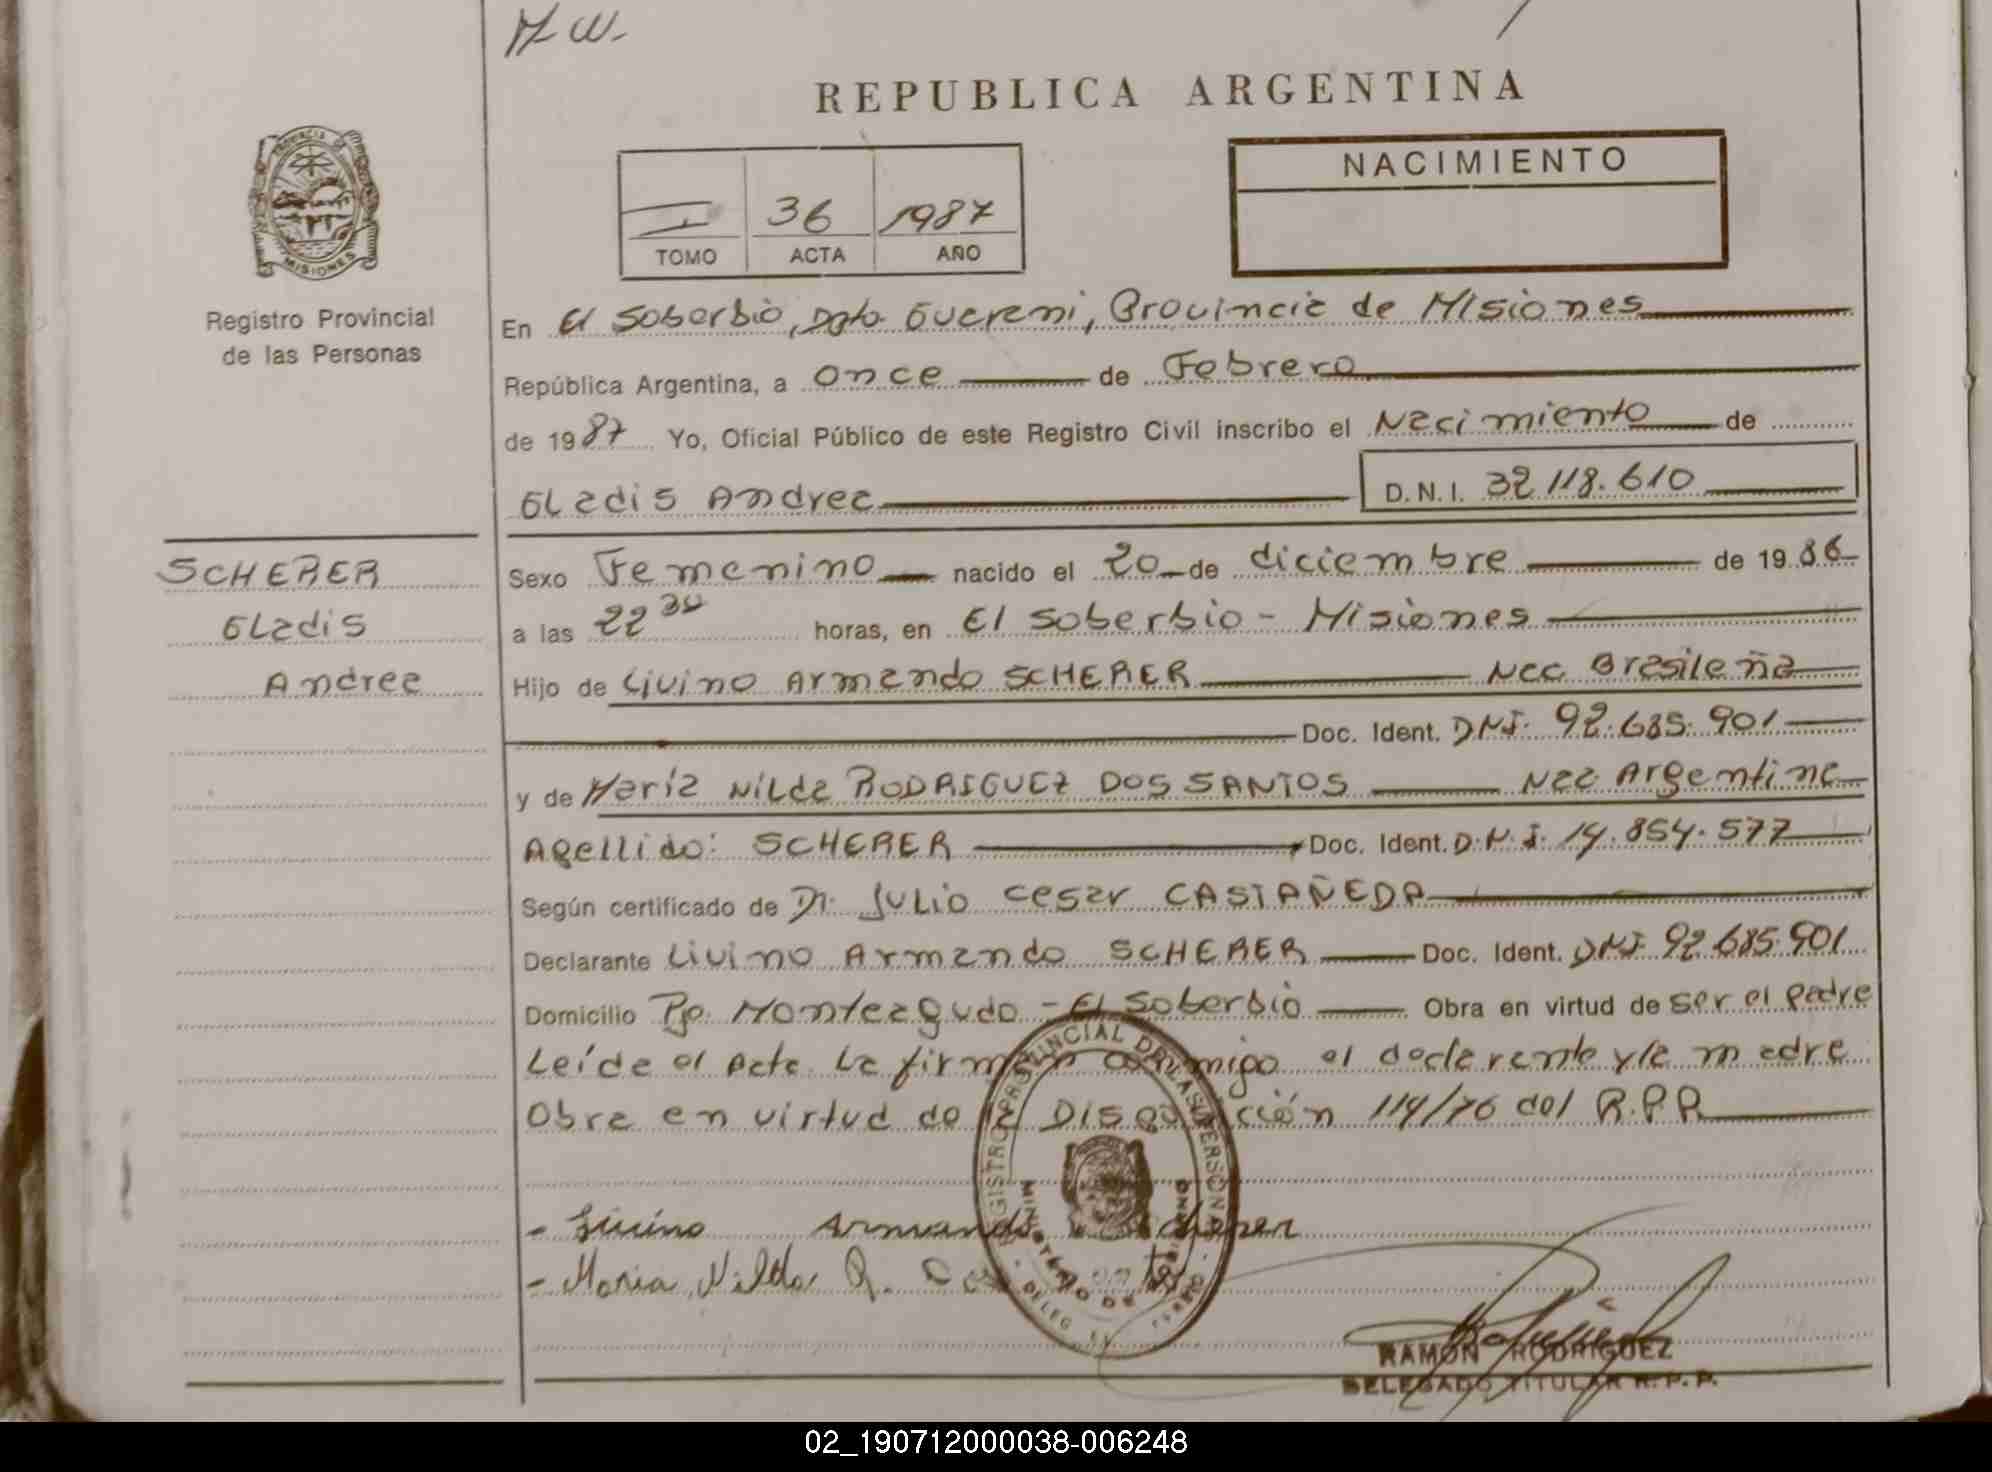 M W.
REPUBLICA ARGENTINA
PROVINCIA
MISIONES
Registro Provincial
de las Personas
I 36 1987
TOMO ACTA AÑO
NACIMIENTO
En El Soberbio, Dpto Guarani, Provincia de Misiones
República Argentina, a once de Febrero
de 1987 Yo, Oficial Público de este Registro Civil inscribo el Nacimiento de
Gladis Andrea D.N.I. 32.118.610
SCHERER
Gladis
Andrea
Sexo Femenino nacido el 20 de diciembre de 1986
a las 22 30 horas, en El Soberbio - Misiones
Hijo de Livino Armando SCHERER Nac Brasileña
Doc. Ident. DNI. 92.685.901
y de María Nilda RODRIGUEZ DOS SANTOS Nac Argentina
Apellido: SCHERER Doc. Ident. D.N.I. 14.854.577
Según certificado de Dr. Julio Cesar CASTAÑEDA
Declarante Livino Armando SCHERER Doc. Ident. DNI 92.685.901
Domicilio Pje. Monteagudo - El Soberbio Obra en virtud de ser el padre
Leída el Acta La firman conmigo el declarante y la madre
Obra en virtud de la Disposición 114/76 del R.P.P.
REGISTRO PROVINCIAL DE LAS PERSONAS
MINISTERIO DE
- Livino Armando Scherer
- Maria Nilda R.
RAMON RODRIGUEZ
DELEGADO TITULAR R.P.P.
02_190712000038-006248